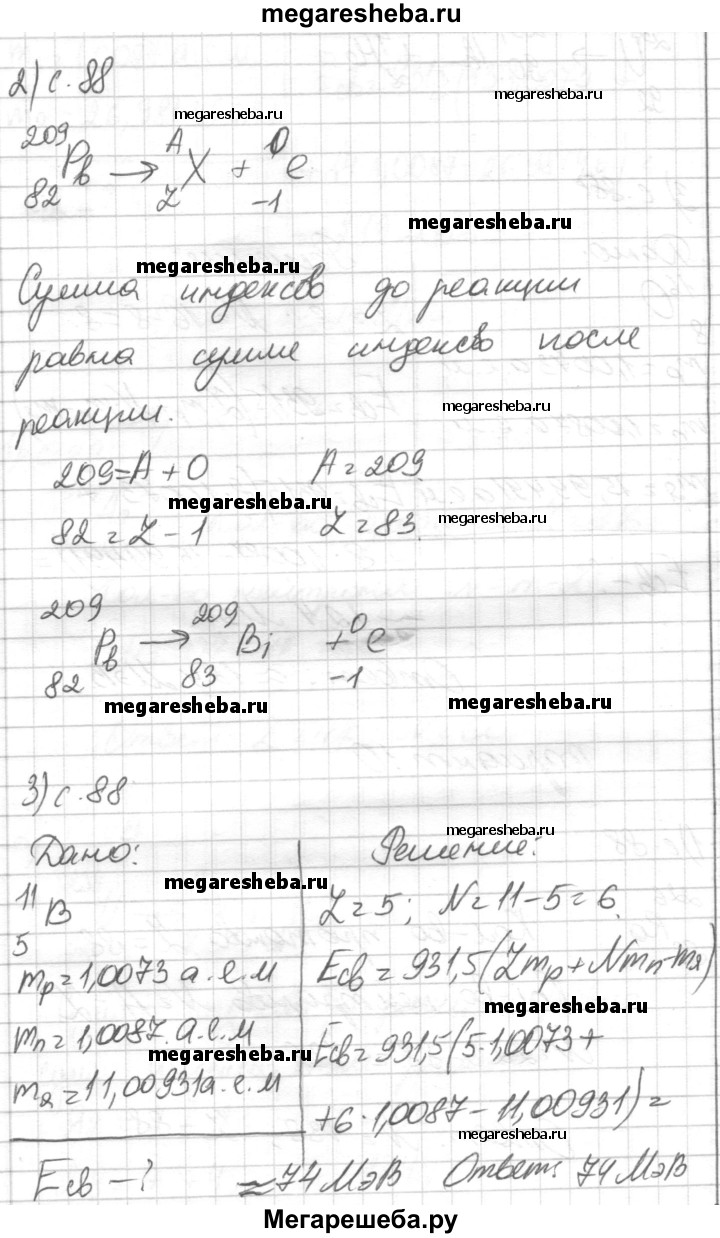 megaresheba.ru
2) с. 88
megaresheba.ru
megaresheba.ru
209 82 Pb → A Z X + 0 -1 e
megaresheba.ru
megaresheba.ru
Сумма индексов до реакции
равна сумме индексов после
megaresheba.ru
реакции.
209=A+0 A=209.
megaresheba.ru
megaresheba.ru
82=Z-1 Z=83.
209 82 Pb → 209 83 Bi + 0 -1 e
megaresheba.ru
megaresheba.ru
3) с. 88
megaresheba.ru
Дано:
megaresheba.ru
11 5 B
mp=1,0073 а.е.м
mn=1,0087.а.е.м
megaresheba.ru
mя=11,00931а.е.м
Eсв-?
Решение:
Z=5; N=11-5=6.
Eсв=931,5(Zmp+Nmn-mя)
megaresheba.ru
Eсв=931,5(5·1,0073+
+6·1,0087-11,00931)=
megaresheba.ru
≈74МэВ Ответ: 74МэВ
Мегарешеба.ру